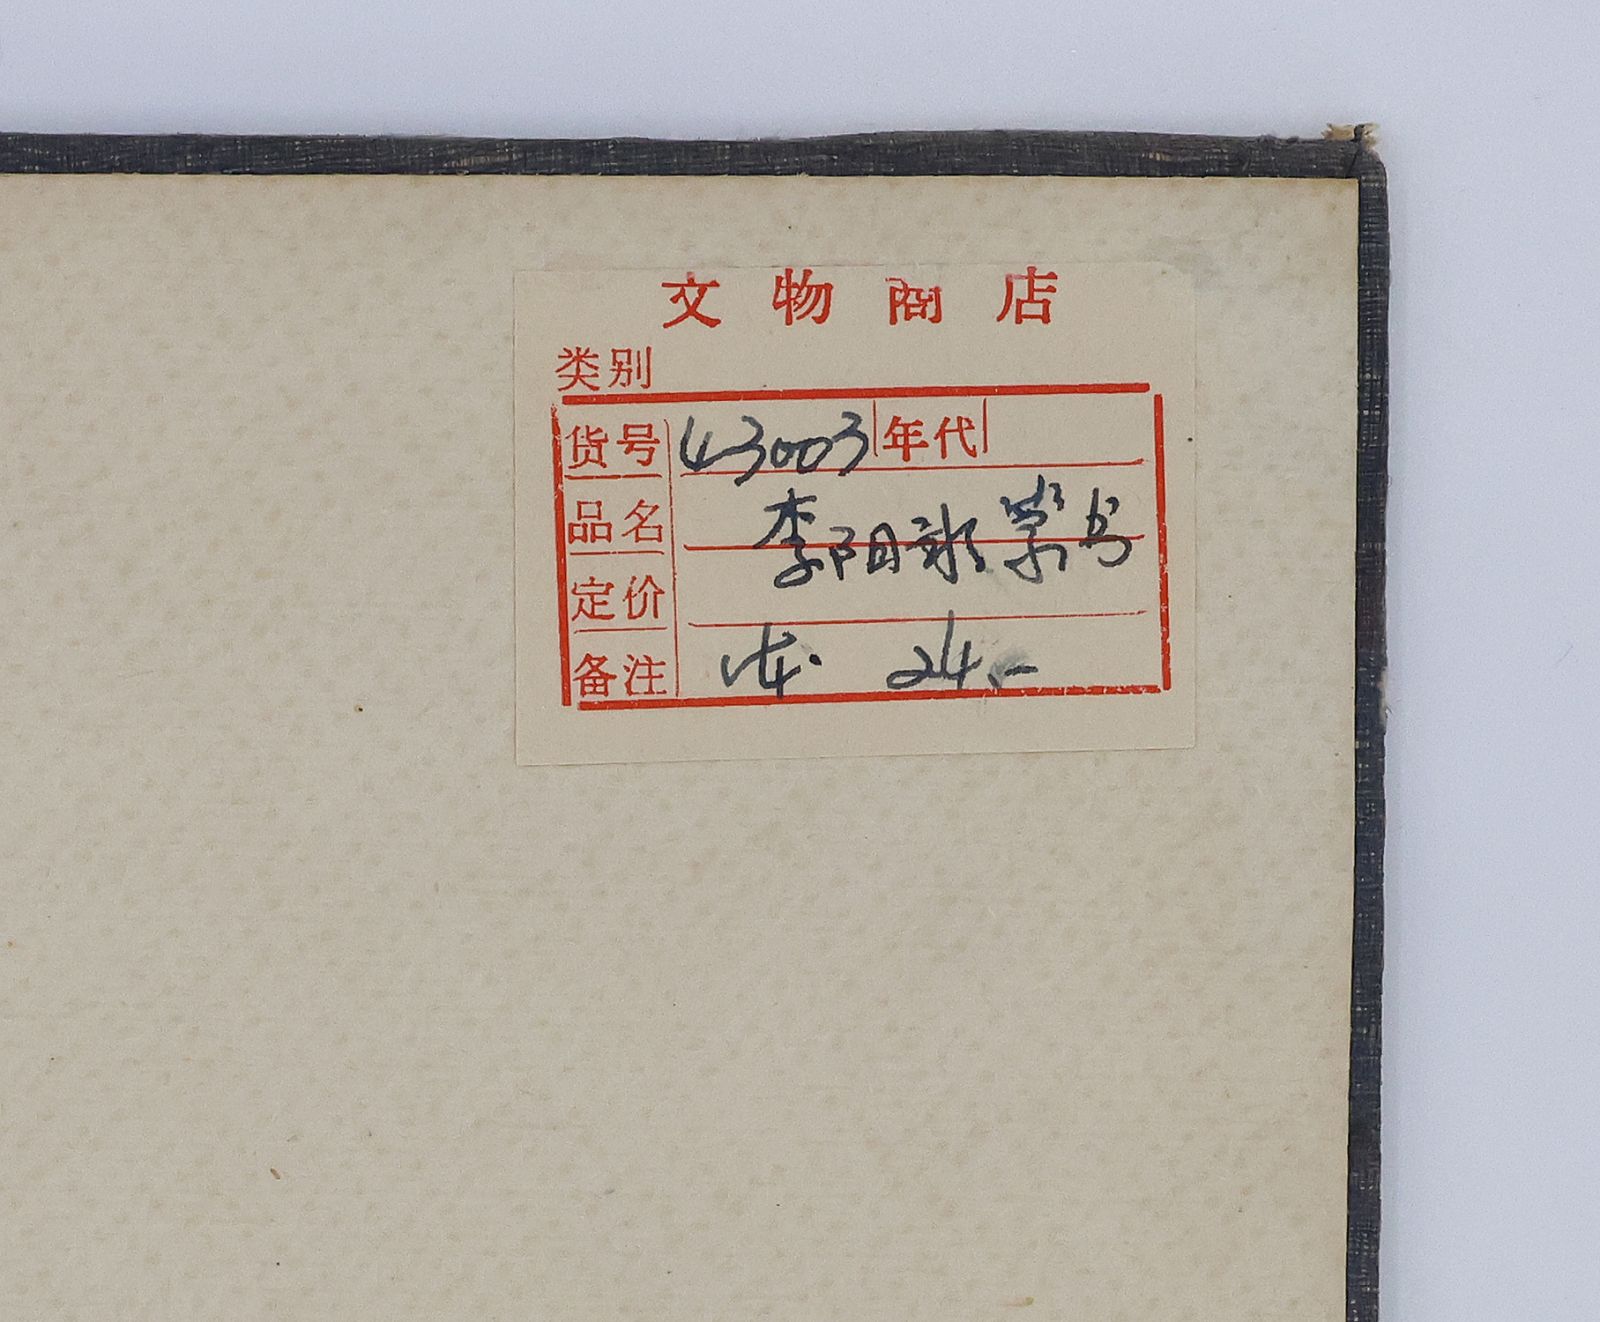 文物商店
类别
货号 43003 年代
品名 李阳冰篆书
定价
备注 1本. 24.-